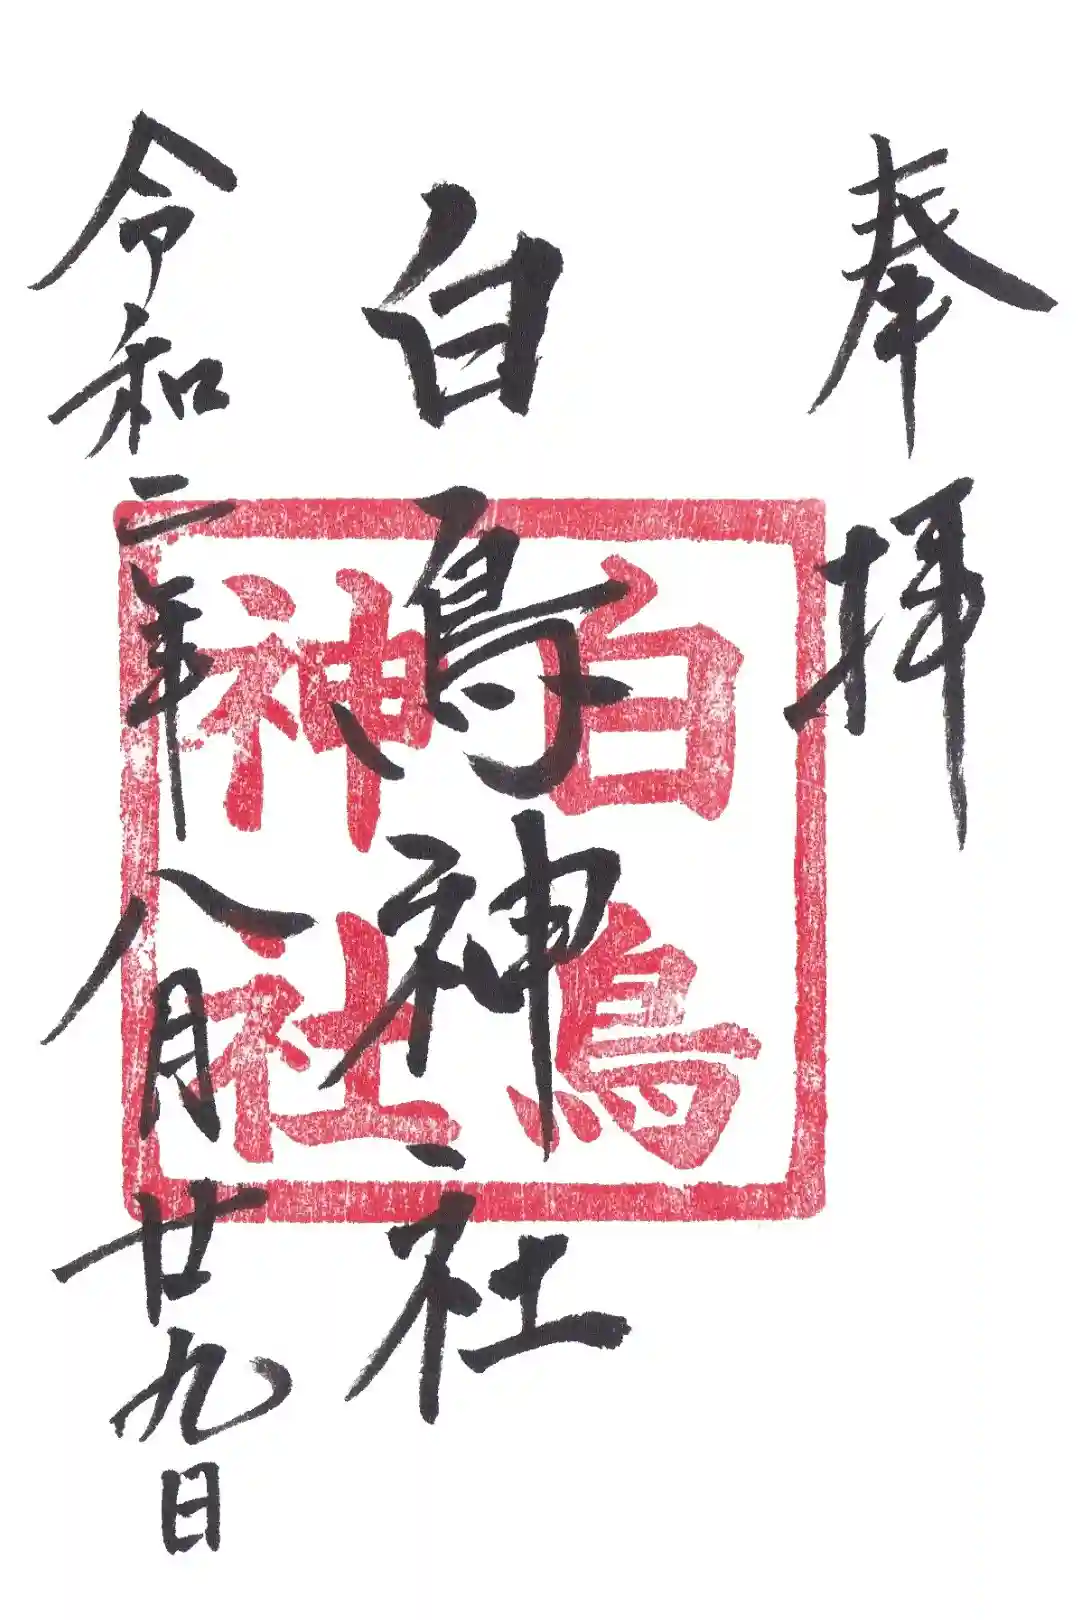 奉拝
白鳥神社
令和二年八月廿九日
白鳥
神社